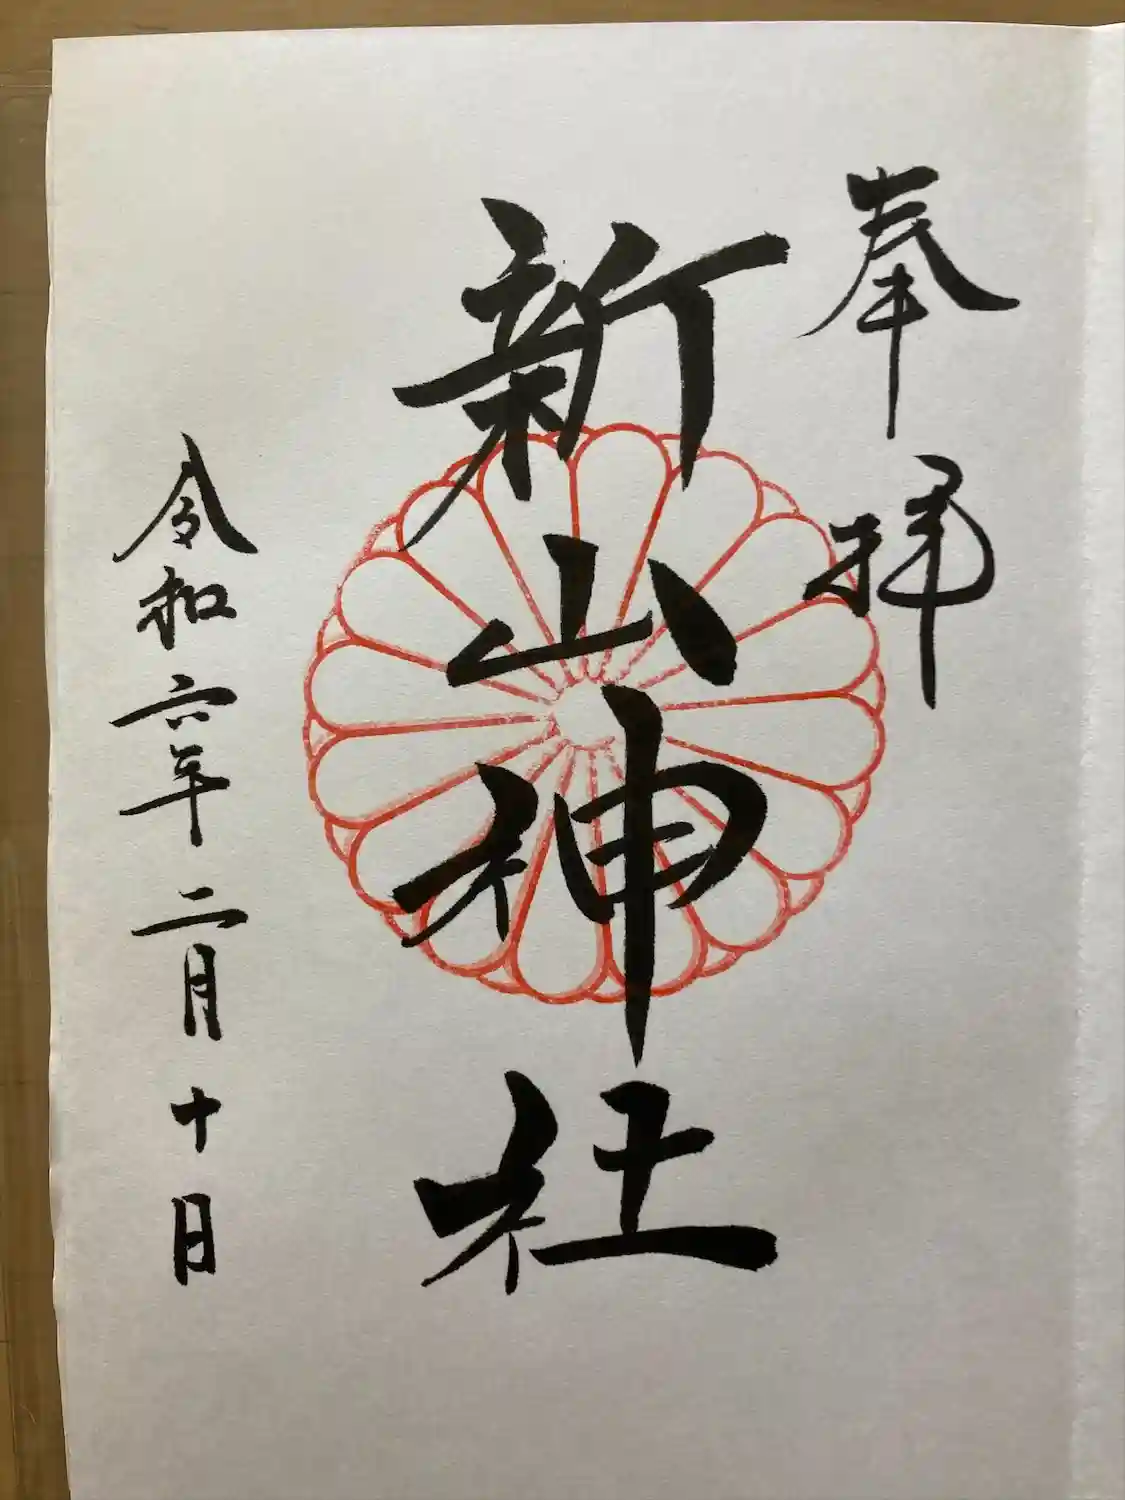 奉拝
新山神社
令和六年二月十日